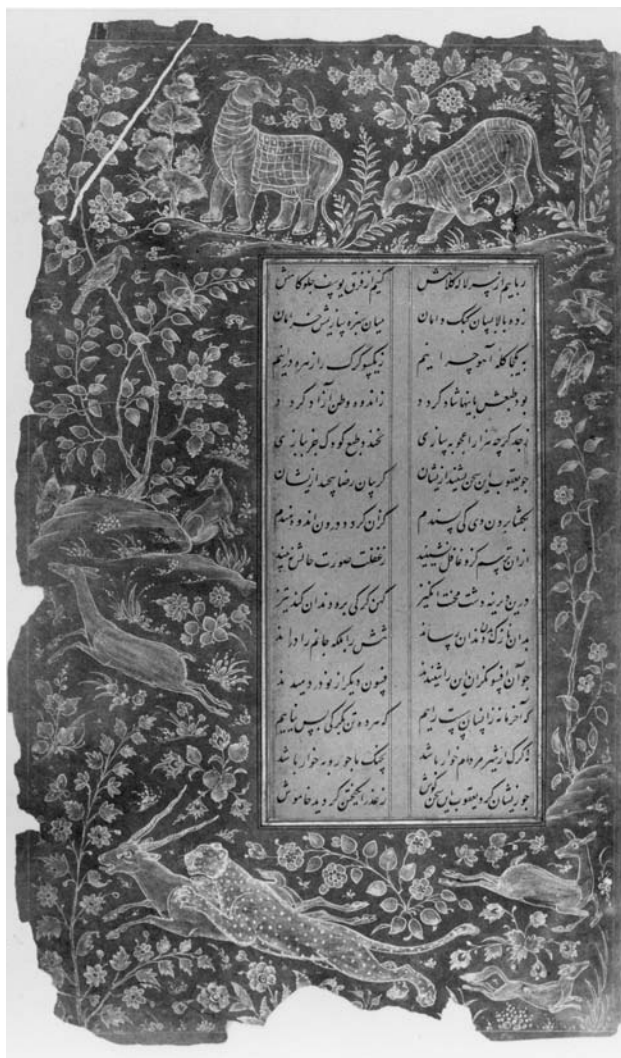 ربایم از لاله کلاهش کنیم از فرق یوسف
زده بالا بسان کبک دامان میان سبزه خرامان
بیکجا کله آهو چرانیم زیکسو کرک را زهره درانیم
بود طبعش باینها شاد کردد زاندوه وطن آزاد کردد
کرچه هزار اعجوبه سازی نخندد طبع کودک جز ببازی
جو یعقوب این سخن بشنید ازیشان کریبان رضا پیچید ازیشان
بکفتا بردن وی کی پسندم کزان کردد درون اندوه بندم
ازان ترسم کزو غافل نشینید زغفلت صورت حالش نبینید
درین دیرینه دشت محنت انکیز کهن کرکی برو دندان کند تیز
بدان نازک بدن دندان رساند تنش را بلکه جانم را دراند
جو آن افسونکران این را شنیدند فسون دیکر از نو در دمیدند
که آخر ما نه زانسان سست راییم که هر ده تن بکرکی بس نیاییم
نه کرک ار شیر مردم خوار باشد بچنک ما جو روبه خوار باشد
جو زیشان کرد یعقوب این سخن کوش زعذر انکیختن کردید خاموش